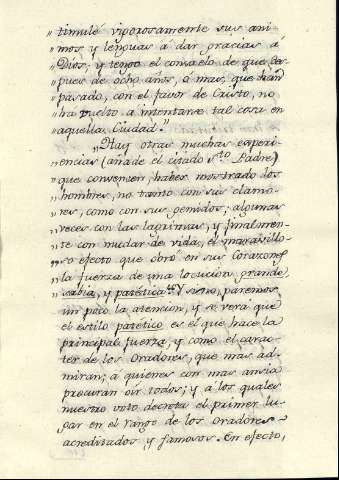 „timulé vigorosamente sus ani-
„mos y lenguas á dar gracias á
„Dios: y tengo el consuelo de que des-
„pues de ocho años, o mas, que han
„pasado, con el favor de Christo, no
„ha vuelto a intentarse tal cosa en
„aquella Ciudad."
„Hay otras muchas experi-
encias (añade el citado Sto Padre)
que convencen, haber mostrado los
hombres, no tanto con sus clamo-
res, como con sus gemidos; algunas
veces con las lagrimas, y finalmen-
te con mudar de vida, el maravillo-
so efecto que obró en sus Corazones
la fuerza de una locucion grande
sabia, y patética." Y sino, paremos
un poco la atencion, y se verá que
el estilo patético es el que hace la
principal fuerza, y como el carac-
ter de los Oradores, que mas ad-
miran; a quienes con mas ansia
procuran oir todos; y á los quales
nuestro voto decreta el primer lu-
gar en el rango de los Oradores
acreditados y famosos. En efecto,